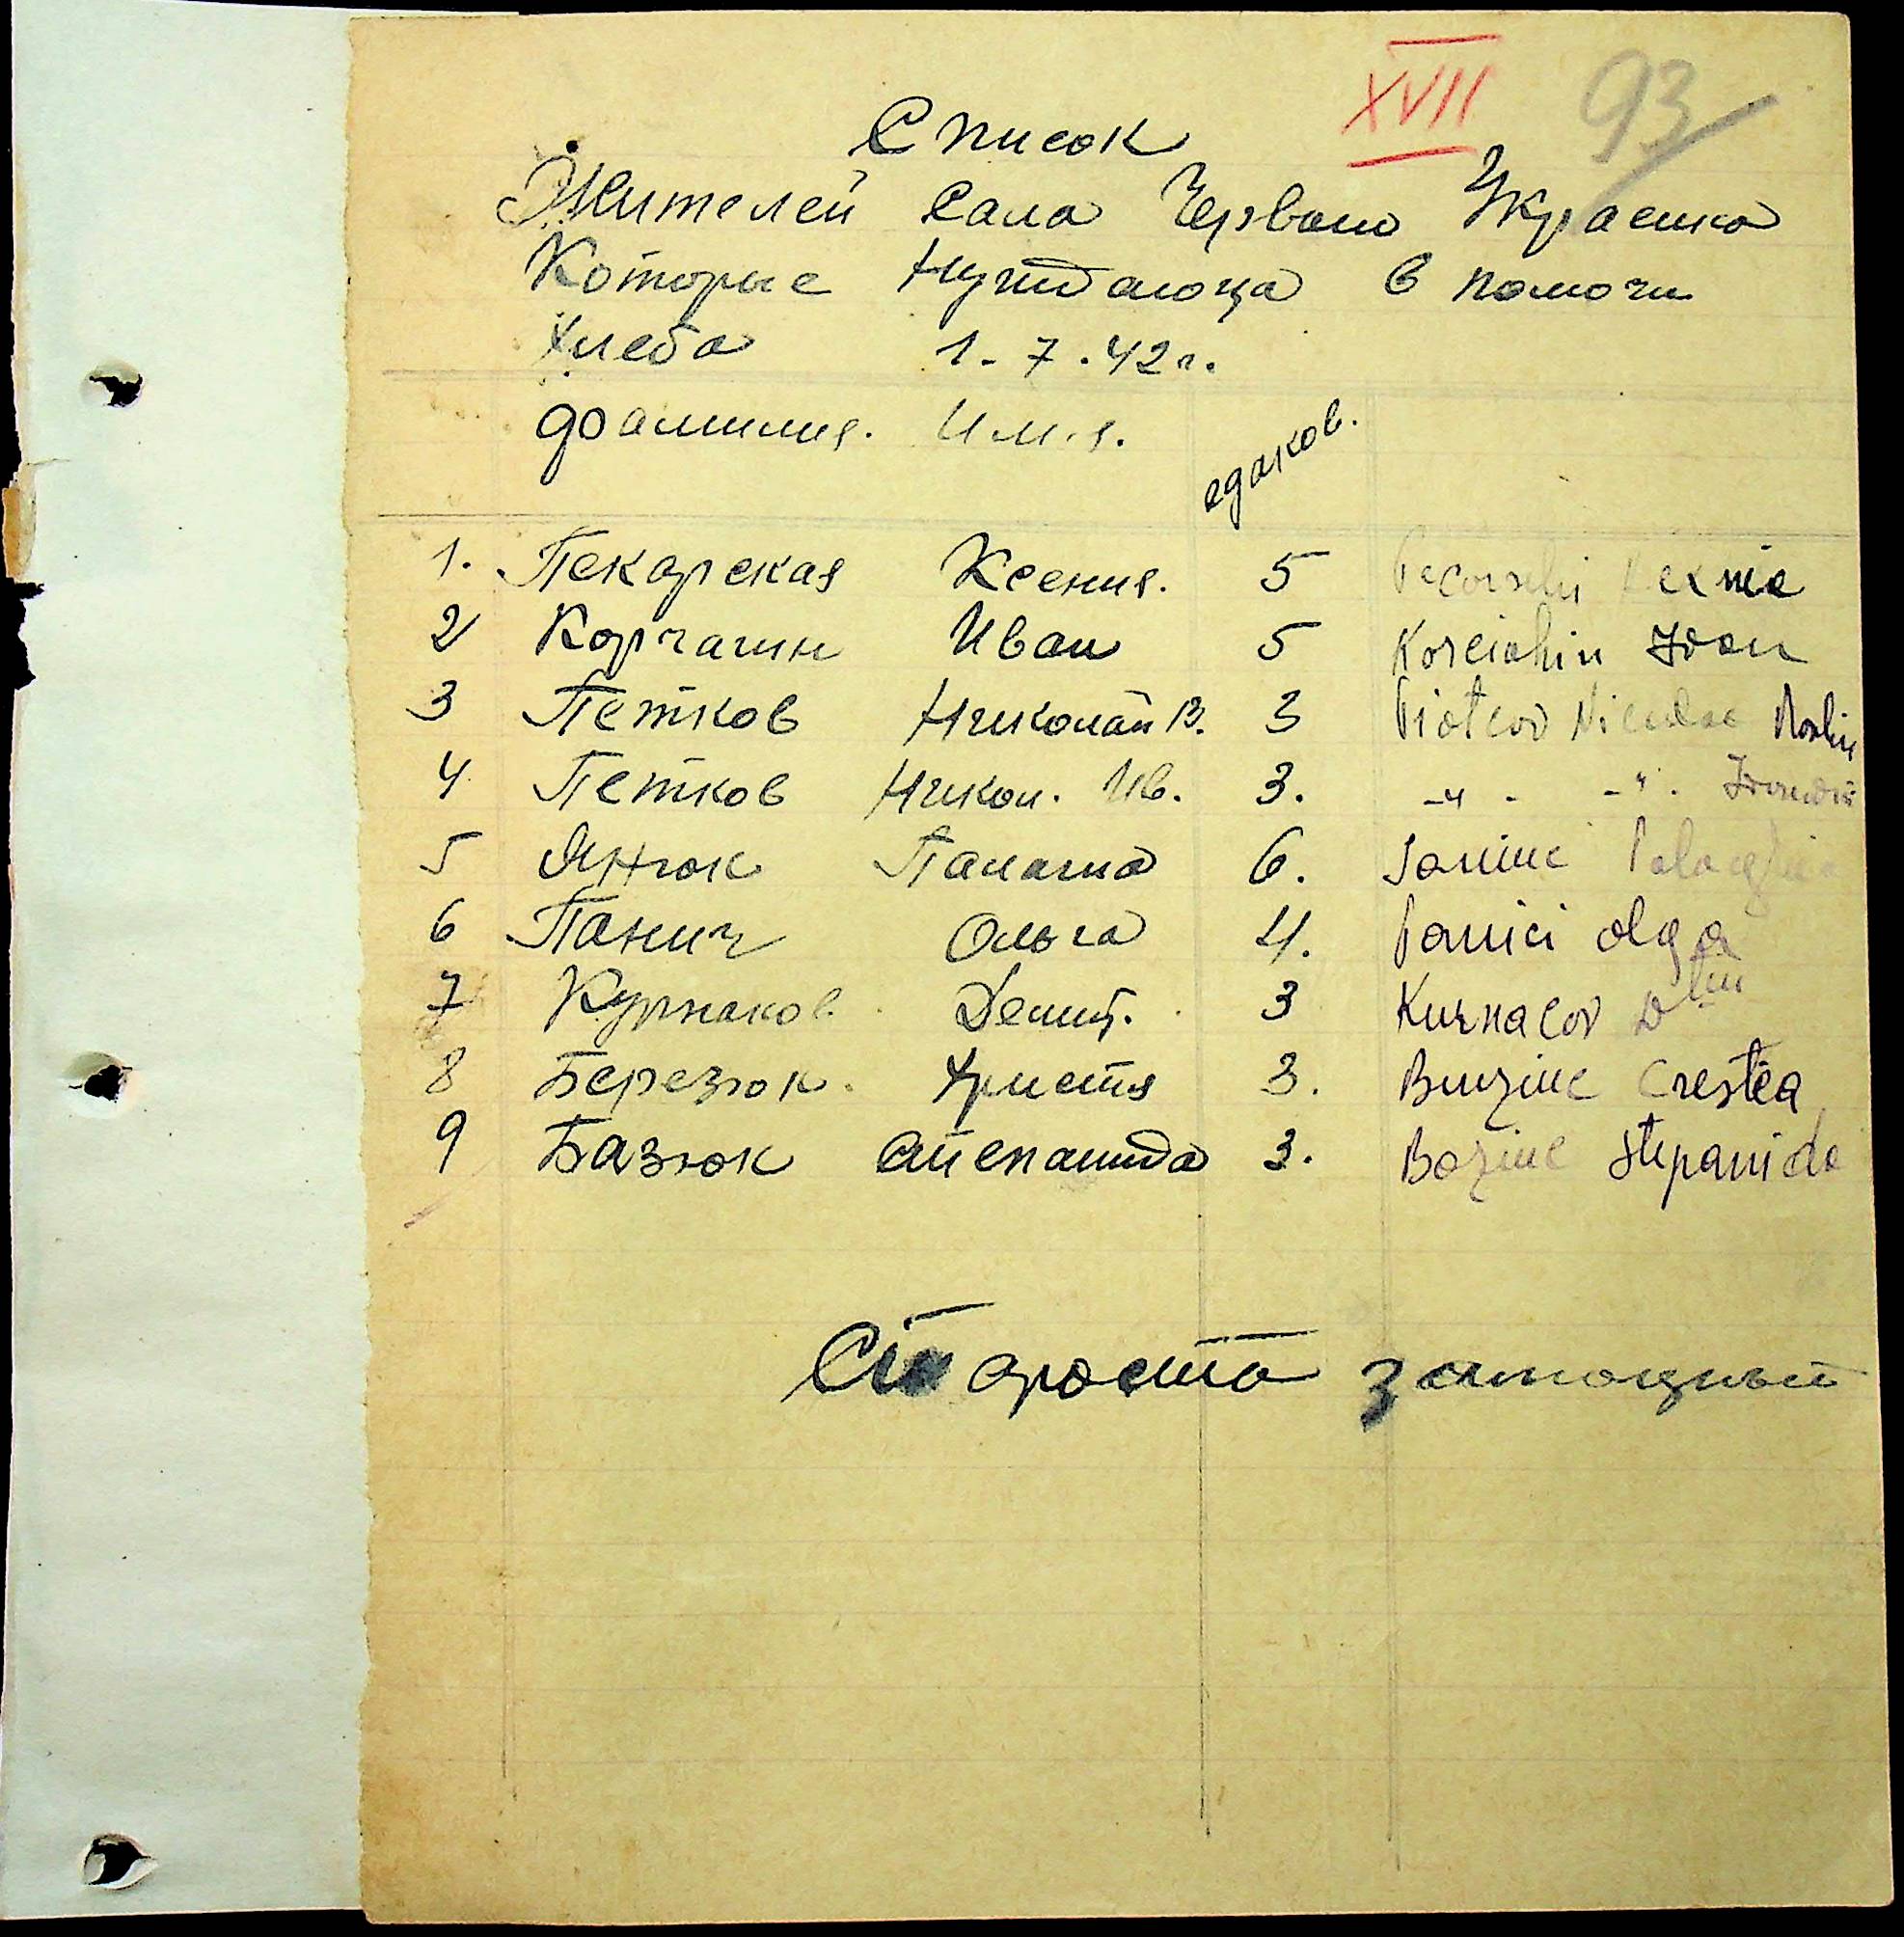 XVII 93
Список
Жителей сала Червоно Украенка
Которые нуждающа в помочи
хлеба 1-7.42г.
фамилия. Имя. едаков.
1. Пекарская Ксения. 5
2 Корчагин Иван 5 Korciahin Ivan
3 Петков Николай В. 3 Piotcov Nicolae
4 Петков Никол. Ив. 3. -"- -"-
5 Янюк Палагна 6. Ianiuc
6 Панич Ольга 4. Panici Olga
7 Курнаков. Демит. 3 Kurnacov
8 Березюк. Христя 3. Crestea
9 Базюк Степанида 3. Baziuc Stepanida
Староста